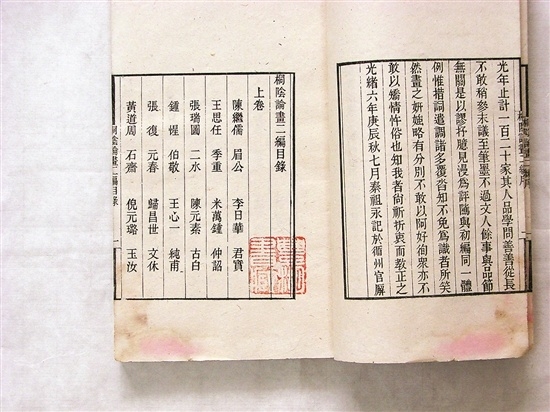 桐陰論畫二編序
光年止計一百二十家其人品學問善善從長
不敢稍參末議至筆墨不過文人餘事與品節
無關是以謬抒臆見漫爲評隲與初編同一體
例惟措詞遣調諸多覆沓知不免爲識者所笑
然畫之妍媸略有分別不敢以阿好徇衆亦不
敢以矯情忤俗也知我者尚祈折衷而教正之
光緒六年庚辰秋七月秦祖永記於循州官廨
桐陰論畫二編目錄
上卷
陳繼儒 眉公 李日華 君實
王思任 季重 米萬鍾 仲詔
張瑞圖 二水 陳元素 古白
鍾惺 伯敬 王心一 純甫
張復 元春 歸昌世 文休
黃道周 石齋 倪元璐 玉汝
桐陰論畫二編目錄 一